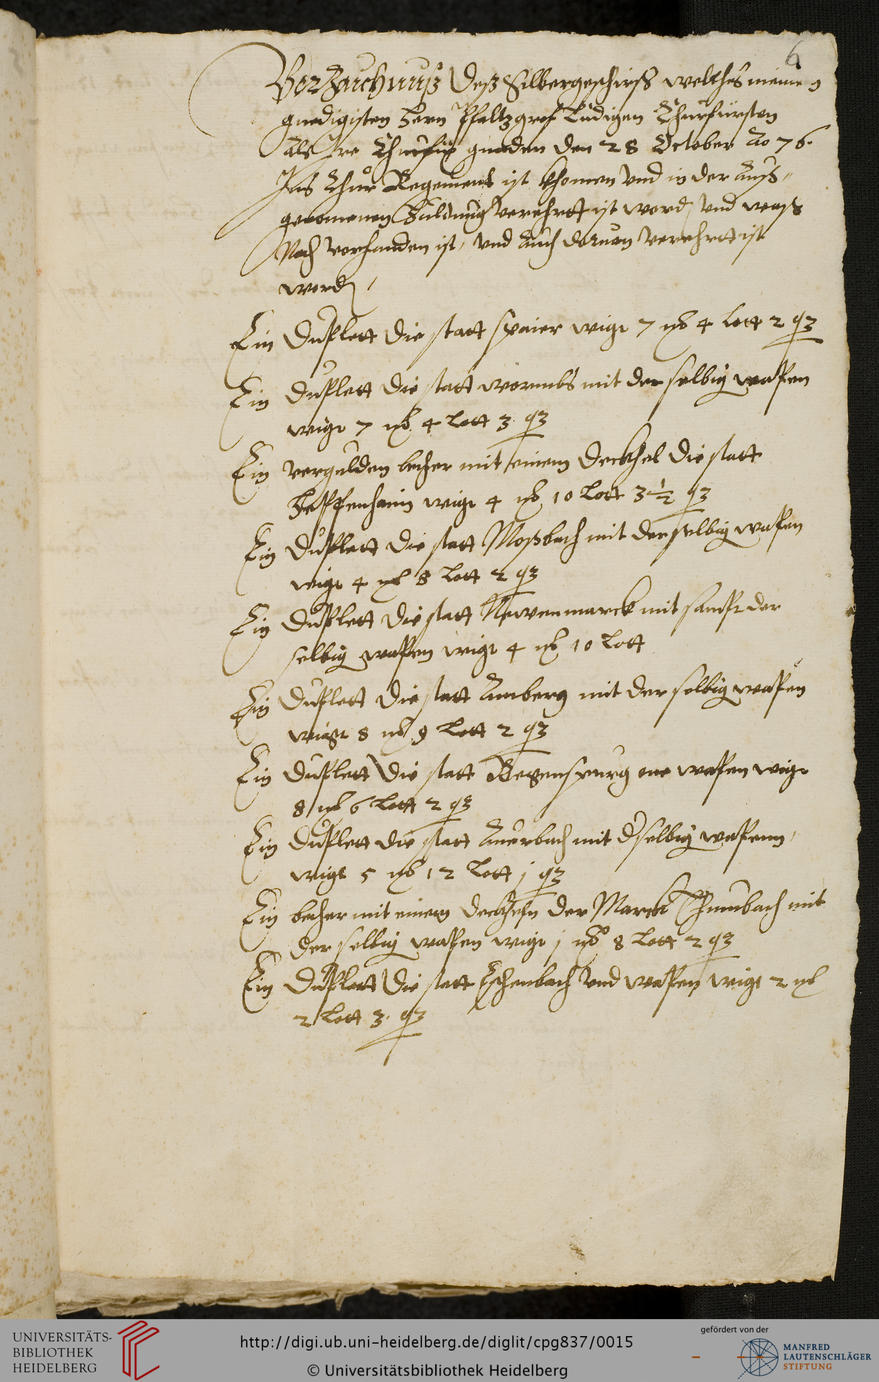 6
Verzaichnuß deß Silbergeschirß welches meinem
gnedigisten Hern Pfaltzgraf Ludigen Churfürsten
als ire Churfür gnaden den 28 October Ao 76.
Ins Chur Regement ist khomen und in der Auß-
genomenen Huldung verehrtt ist word, und waß
Noch vorhanden ist, und auch daruon verehrtt ist
word,
Ein duplett die statt speier wigt 7 mk 4 lott 2 q3
Ein duplett die statt wormbs mit der selbig wapen
wigt 7 mk 4 lott 3 q3
Ein vergulden becher mit einem deckhel die statt
Heppenhaim wigt 4 mk 10 Lott 3½ q3
Ein duplett die statt Moßbach mit der selbig wapen
wigt 4 mk 8 lott 2 q3
Ein duplett die statt Newenmarck mit sampt der
selbig wappen wigt 4 mk 10 lott
Ein duplett die statt Amberg mit der selbig wapen
wigt 8 mk 9 Lott 2 q3
Ein duplett die statt Regenspurg one wapen wigt
8 mk 6 lott 2 q3
Ein duplett die statt Aurbach mit d selbig wappenn,
wigt 5 mk 12 Lott j q3
Ein becher mit einem deckheln der Marck mit
der selbig wapen wigt j mk 8 Lott 2 q3
Ein duplett die statt Eschenbach und wapen wigt 2 mk
2 Lott 3 q3
UNIVERSITÄTS-
BIBLIOTHEK
HEIDELBERG
http://digi.ub.uni-heidelberg.de/diglit/cpg837/0015
© Universitätsbibliothek Heidelberg
gefördert von der
MANFRED
LAUTENSCHLÄGER
STIFTUNG